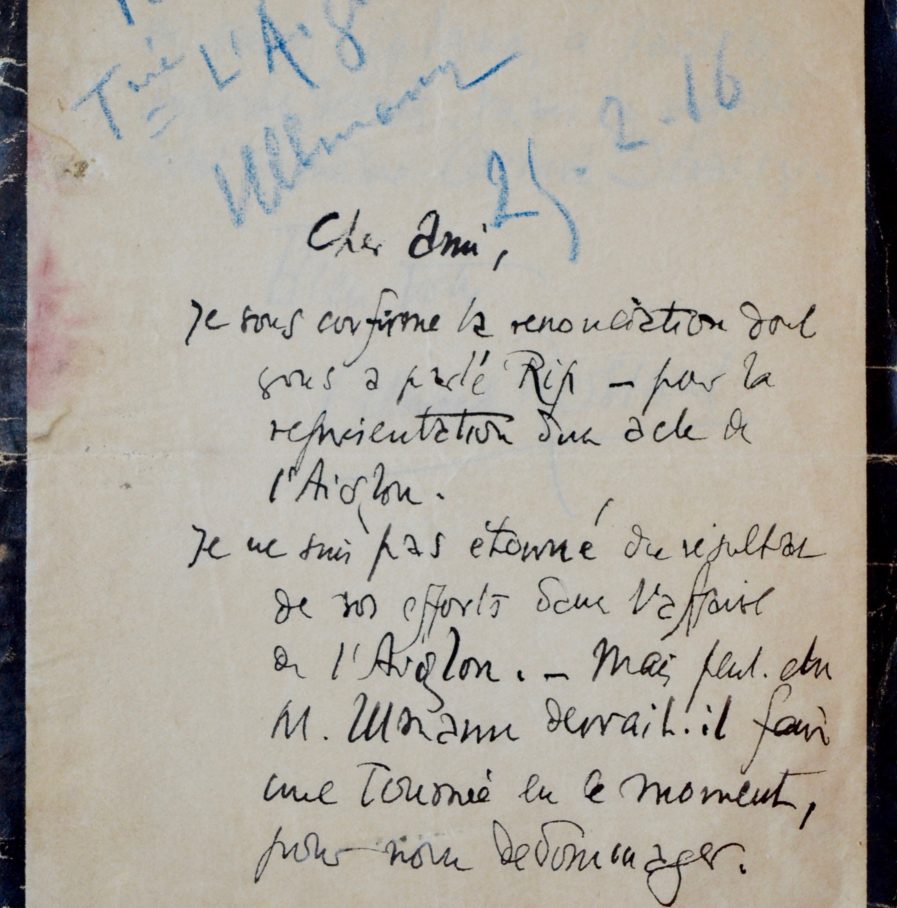 Tné L'Aig
Ullmann
25-2-16
Cher Ami,
Je vous confirme la renonciation dont
vous a parlé Rip – pour la
représentation d'un acte de
l'Aiglon.
Je ne suis pas étonné du résultat
de vos efforts dans l'affaire
de l'Aiglon. – Mais peut-être
M. Ullmann devrait-il faire
une Tournée en ce moment,
pour nous dédommager.